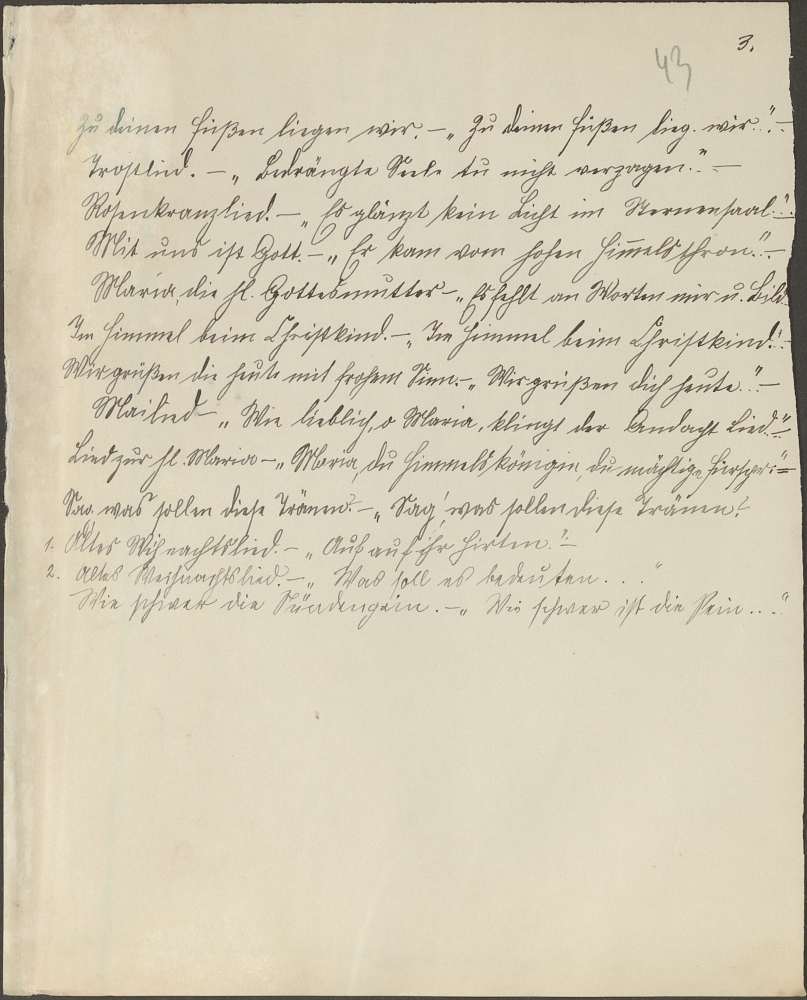 3.
43
Zu deinen Füßen liegen wir. – „Zu deinen Füßen lieg. wir..." –
Trostlied. – „Bedrängte Seele tu nicht verzagen.." –
Rosenkranzlied. – „Es glänzt kein Licht im Sternensaal.."
Mit uns ist Gott. – „Er kam vom hohen Himmelsthron.." –
Maria, die hl. Gottesmutter – „Es fehlt an Worten mir u. Bild
Im Himmel beim Christkind. – „Im Himmel beim Christkind."
Wir grüßen die heute mit frohem Sinn. – „Wir grüßen dich heute.." –
Mailied – „Wie lieblich, o Maria, klingt der Andacht Lied.."
Lied zur hl. Maria – „Maria, du Himmelskönigin, du mächtige
Sag was sollen diese Tränen? – „Sag' was sollen diese Tränen?
1. Altes Weihnachtslied. – „Auf auf ihr Hirten." –
2. Altes Weihnachtslied. – „Was soll es bedeuten . . ."
Wie schwer die Sündenpein. – „Wie schwer ist die Pein ..."